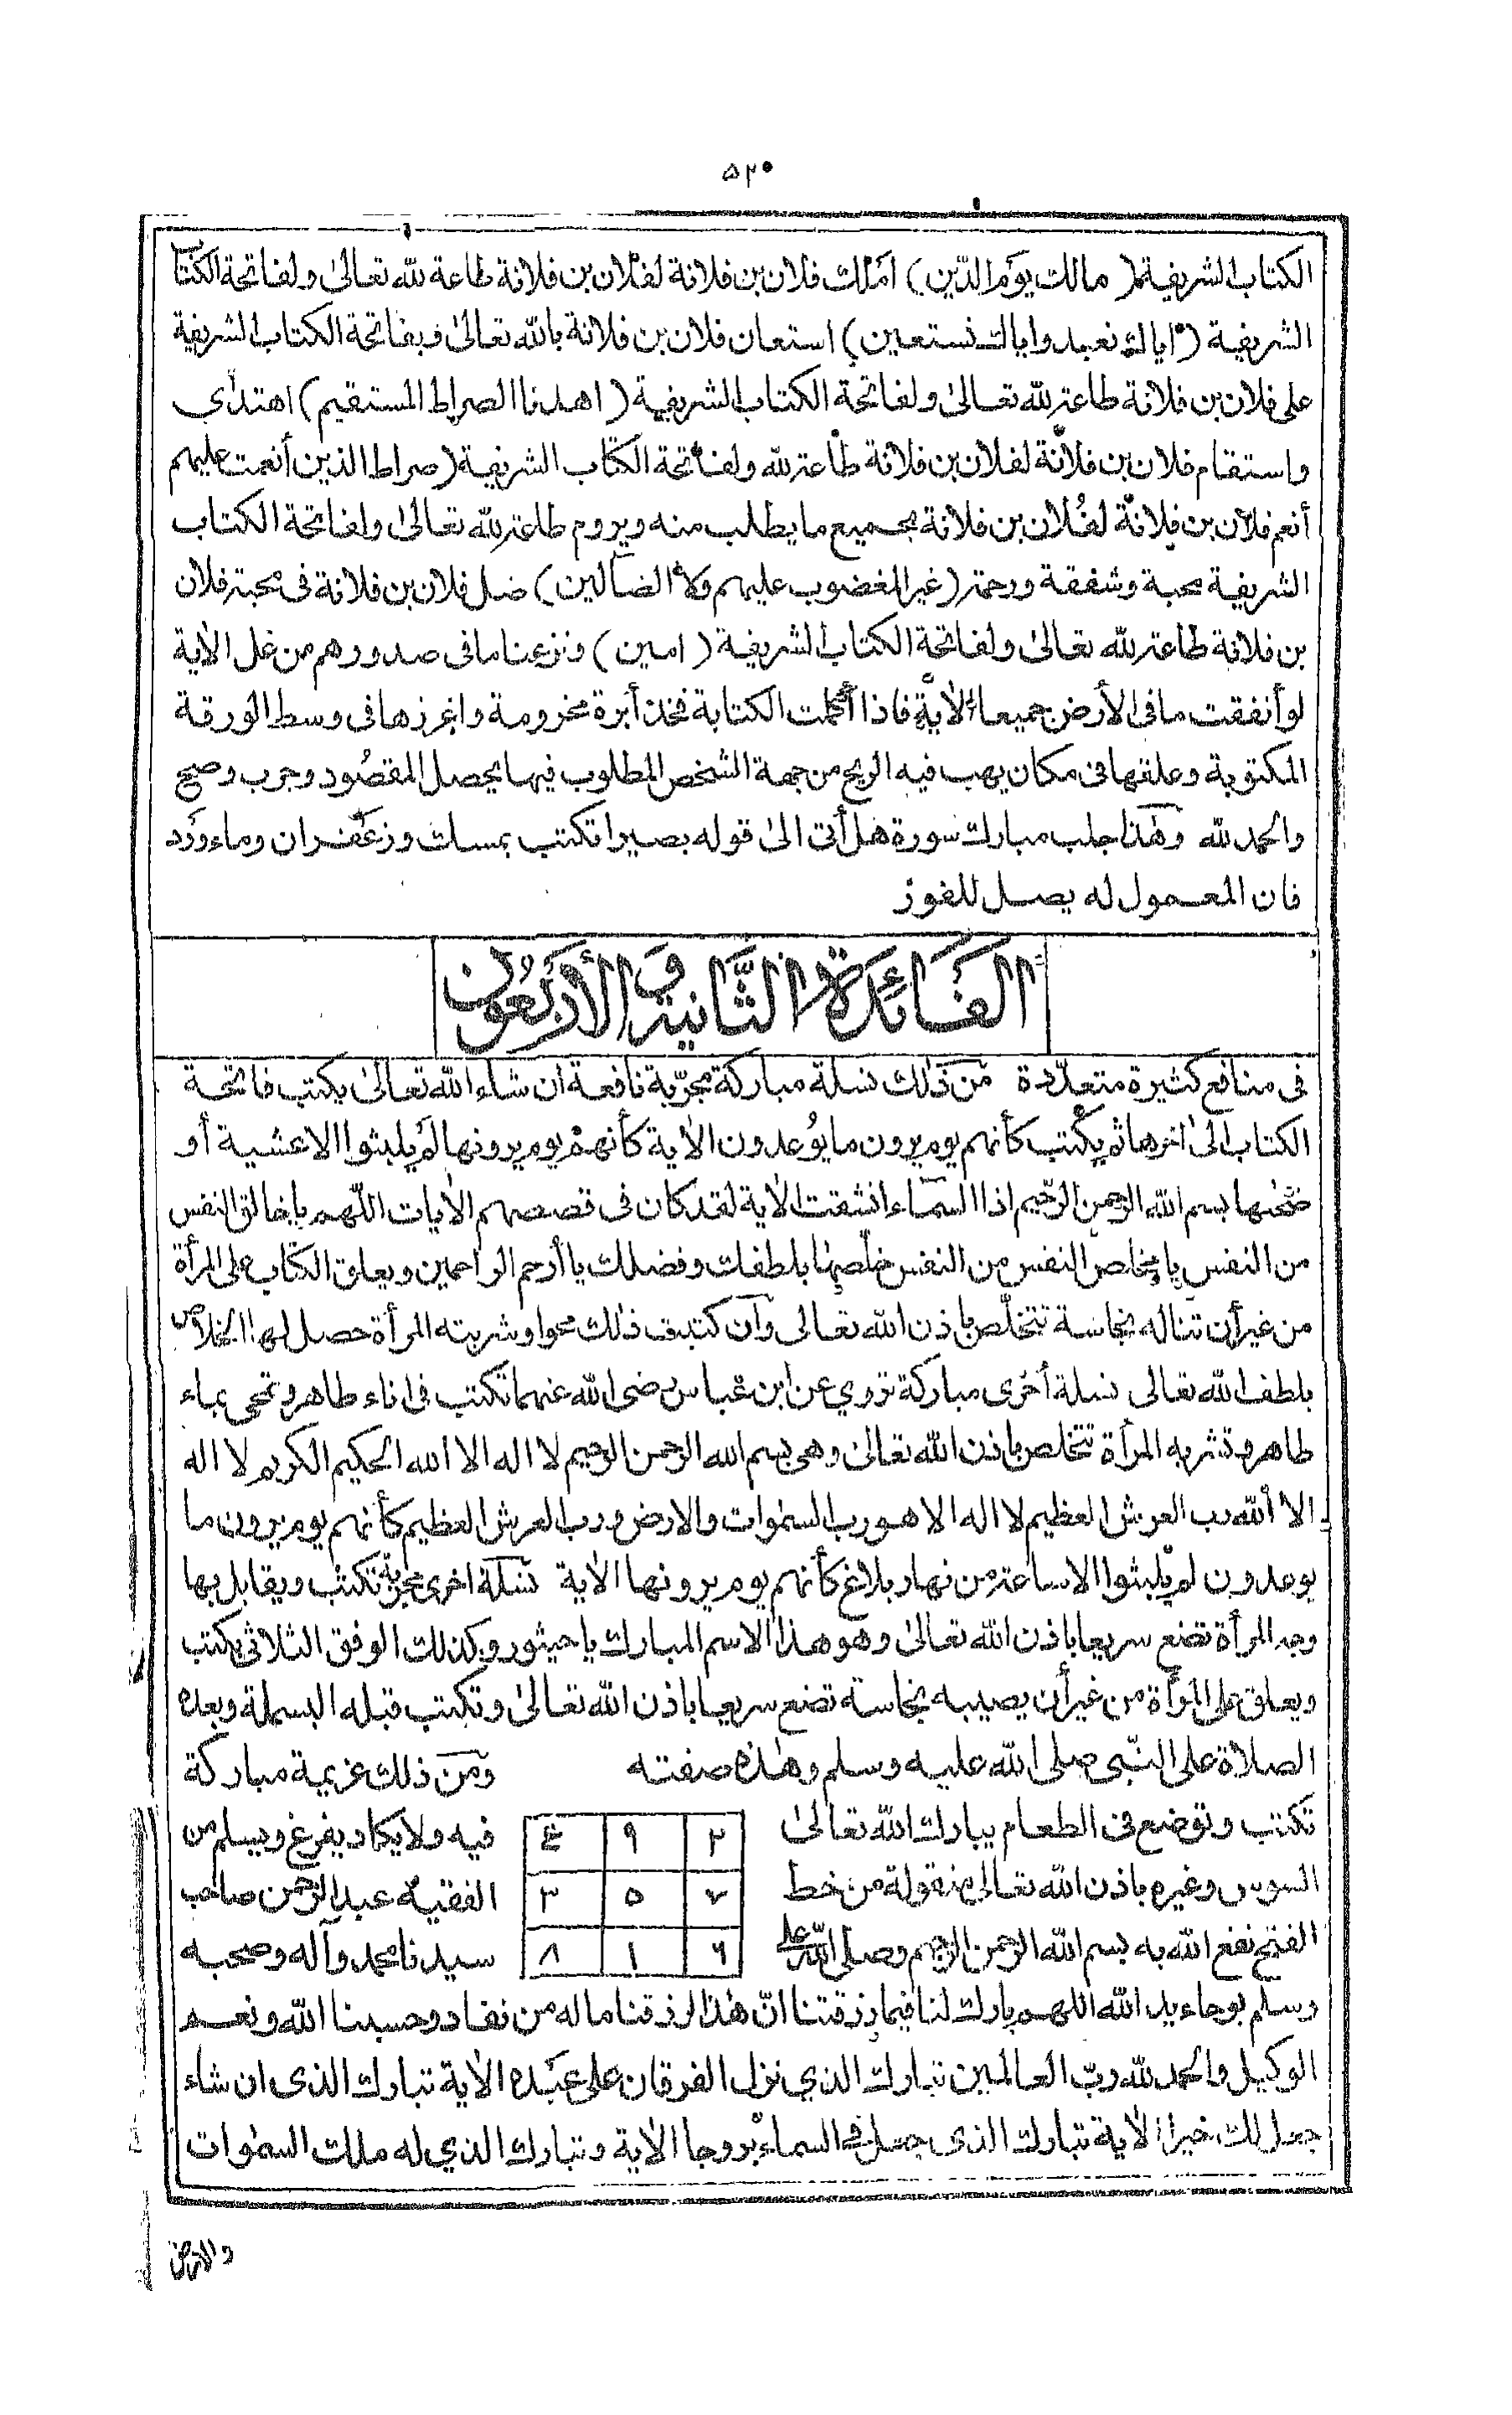 ٥٢٠
الكتاب الشريفة ( مالك يوم الدين ) امتلك فلان بن فلانة لفلان بن فلانة طاعة لله تعالى ولفاتحة الكتاب
الشريفة ( اياك نعبد واياك نستعين ) استعان فلان بن فلانة بالله تعالى وبفاتحة الكتاب الشريفة
على فلان بن فلانة طاعة لله تعالى ولفاتحة الكتاب الشريفة ( اهدنا الصراط المستقيم ) اهتدى
واستقام فلان بن فلانة لفلان بن فلانة طاعة لله ولفاتحة الكتاب الشريفة ( صراط الذين أنعمت عليهم
أنعم فلان بن فلانة لفلان بن فلانة بجميع ما يطلب منه ويروم طاعة لله تعالى ولفاتحة الكتاب
الشريفة محبة وشفقة ورحمة ( غير المغضوب عليهم ولا الضآلين ) ضل فلان بن فلانة فى محبة فلان
بن فلانة طاعة لله تعالى ولفاتحة الكتاب الشريفة ( امين ) ونزعنا ما فى صدورهم من غل الاية
لو أنفقت ما فى الأرض جميعا الاية فاذا أكملت الكتابة فخذ أبرة مخرومة واغرزها فى وسط الورقة
المكتوبة وعلقها فى مكان يهب فيه الريح من جهة الشخص المطلوب فيها يحصل المقصود وجرب وصح
والحمد لله وهذا جلب مبارك سورة هل أتى الى قوله بصيرا تكتب بمسك وزعفران وماء ورد
فان المعمول له يصل للفوز
الفائدة الثانية والأربعون
فى منافع كثيرة متعددة من ذلك نسلة مباركة مجربة نافعة ان شاء الله تعالى يكتب فاتحة
الكتاب الى اخرها ثم يكتب كأنهم يوم يرون ما يوعدون الاية كأنهم يوم يرونها لم يلبثوا الا عشية أو
ضحها بسم الله الرحمن الرحيم اذا السماء انشقت الاية لقد كان فى قصصهم الايات اللهم يا خالق النفس
من النفس يا مخلص النفس من النفس خلصها بلطفك وفضلك يا أرحم الراحمين ويعلق الكتاب على المرأة
من غير أن تناله نجاسة تتخلص باذن الله تعالى وان كتبت ذلك محوا وشربته المرأة حصل لها الخلاص
بلطف الله تعالى نسلة أخرى مباركة تروي عن ابن عباس رضى الله عنهما تكتب فى اناء طاهر وتمحى بماء
طاهر وتشربه المرأة تتخلص باذن الله تعالى وهى بسم الله الرحمن الرحيم لا اله الا الله الحكيم الكريم لا اله
الا الله رب العرش العظيم لا اله الا هو رب السموات والارض ورب العرش العظيم كأنهم يوم يرون ما
يوعدون لم يلبثوا الا ساعة من نهار بلاغ كأنهم يوم يرونها الاية نسلة اخرى مجربة تكتب ويقابل بها
وجه المرأة تضع سريعا باذن الله تعالى وهو هذا الاسم المبارك يا حيثور وكذلك الوفق الثلاثى يكتب
ويعلق على المرأة من غير أن يصيبه نجاسة تضع سريعا باذن الله تعالى وتكتب قبله البسملة وبعده
الصلاة على النبي صلى الله عليه وسلم وهذه صفته ومن ذلك عزيمة مباركة
تكتب وتوضع فى الطعام يبارك الله تعالى فيه ولا يكاد يفرغ ويسلم من
السوس وغيره باذن الله تعالى منقولة من خط الفقيه عبد الرحمن صاحب
الفتح نفع الله به بسم الله الرحمن الرحيم وصلى الله على سيدنا محمد وآله وصحبه
٢ ٩ ٤
٧ ٥ ٣
٦ ١ ٨
وسلم بوجاء يد الله اللهم بارك لنا فيما رزقتنا ان هذا لرزقنا ما له من نفاد وحسبنا الله ونعم
الوكيل والحمد لله رب العالمين تبارك الذي نزل الفرقان على عبده الاية تبارك الذى ان شاء
جعل لك خيرا الاية تبارك الذى جعل فى السماء بروجا الاية وتبارك الذي له ملك السموات
والارض